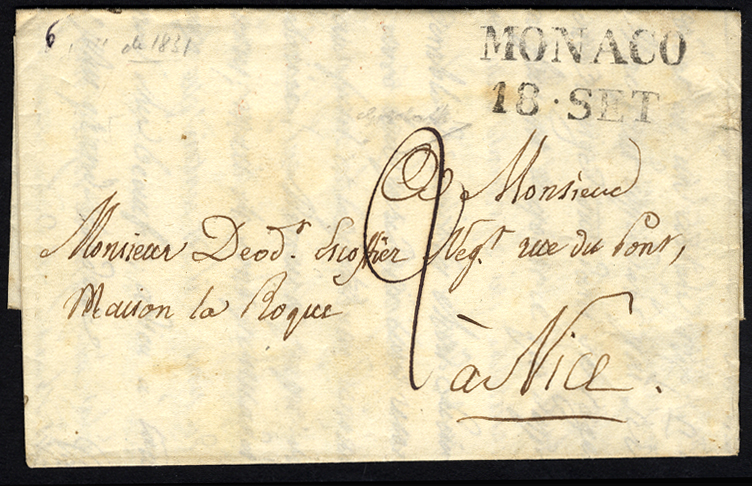 6
de 1831
MONACO
18 · SET
A Monsieur
Monsieur Deodr. Escoffier Negt. rue du Pont,
Maison la Roque
2
à Nice.